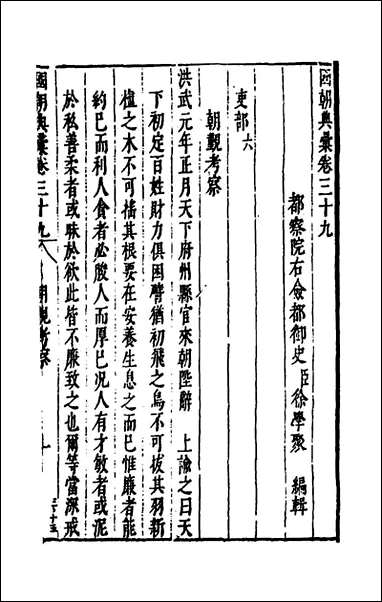 國朝典彙卷三十九
都察院右僉都御史臣徐學聚 編輯
吏部六
朝覲考察
洪武元年正月天下府州縣官來朝陛辭 上諭之曰天
下初定百姓財力俱困譬猶初飛之鳥不可拔其羽新
植之木不可搖其根要在安養生息之而已惟廉者能
約已而利人貪者必朘人而厚已况人有才敏者或泥
於私善柔者或昧於欲此皆不廉致之也爾等當深戒
國朝典彙卷三十九 朝覲考察 一